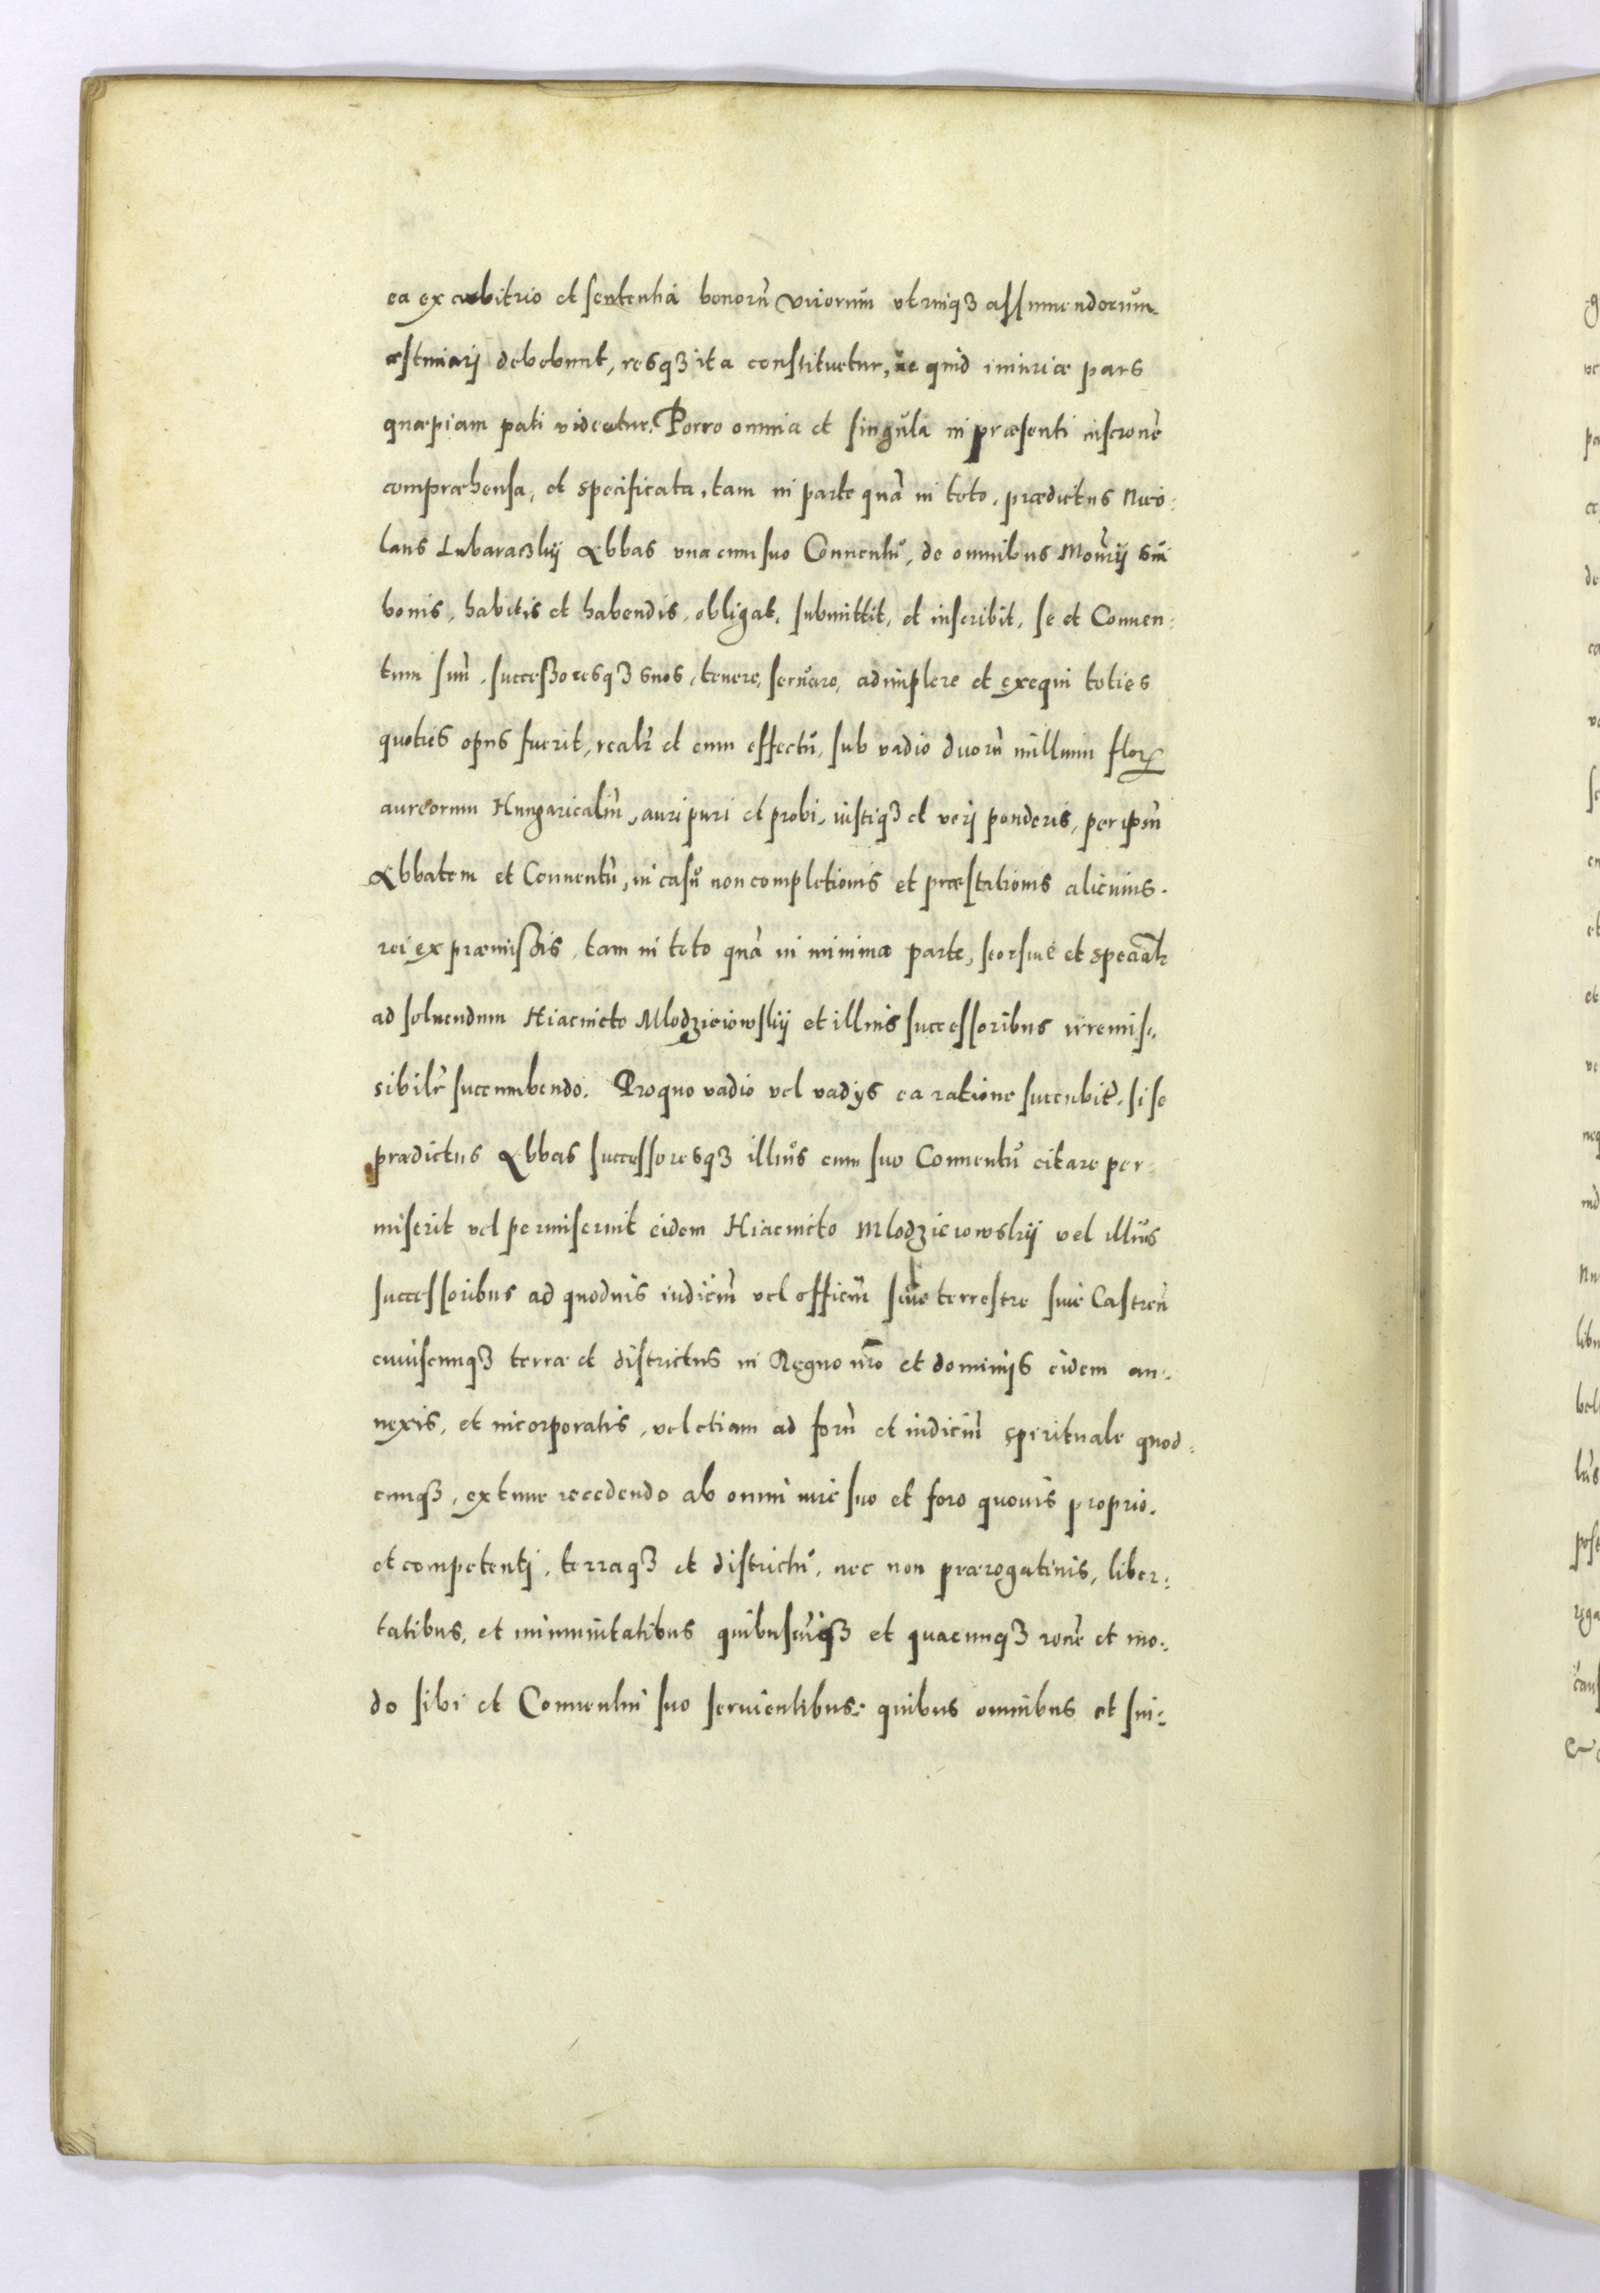 ea ex arbitrio et sententia bonorũ virorum vtrinqꝫ assumendorum
æstimarj debebunt, resqꝫ ita constituetur, ne quid iniuriæ pars
quæpiam pati videatur. Porro omnia et singula in præsenti inscrone
compræhensa, et specificata, tam in parte quã in toto, prædictus Nico:
laus Lubaraczkij Abbas vna cum suo Conuentu, de omnibus Monrij sui
bonis, habitis et habendis, obligat, submittit, et inscribit, se et Conuen:
tum suũ, successoresqꝫ suos, tenere, seruare, adimplere et exequi toties
quoties opus fuerit, realr et cum effectu, sub vadio duorũ millium floꝝ
aureorum Hungaricaliũ, auri puri et probi, iustiqꝫ et verj ponderis, per ipsũ
Abbatem et Conuentũ, in casu non completionis et præstationis alicuius.
rei ex præmissis, tam in toto quã in minima parte, seorsiue et specialr
ad soluendum Hiacincto Mlodzieiowskij et illius successoribus irremis:
sibilr succumbendo. Pro quo vadio vel vadijs ea ratione succubit, si se
prædictus Abbas successoresqꝫ illius cum suo Conuentu citare per:
miserit vel permiserint eidem Hiacincto Mlodzieiowskij vel illius
successoribus ad quoduis iudiciũ vel officiũ siue terrestre siue Castren
cuiuscunqꝫ terræ et districtus in Regno nro et dominijs eidem an:
nexis, et incorporatis, vel etiam ad forũ et iudiciũ spirituale quod:
cunqꝫ, ex tunc recedendo ab omni iure suo et foro quouis proprio.
et competentj, terraqꝫ et districtu, nec non prærogatiuis, liber:
tatibus, et immunitatibus quibuscũqꝫ et quacunqꝫ rone et mo:
do sibi et Conuentui suo seruientibus: quibus omnibus et sin: